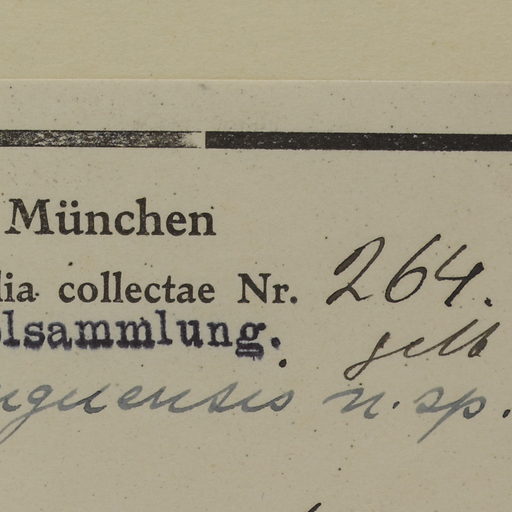 München
lia collectae Nr. 264.
lsammlung. gelb
guensis n. sp.